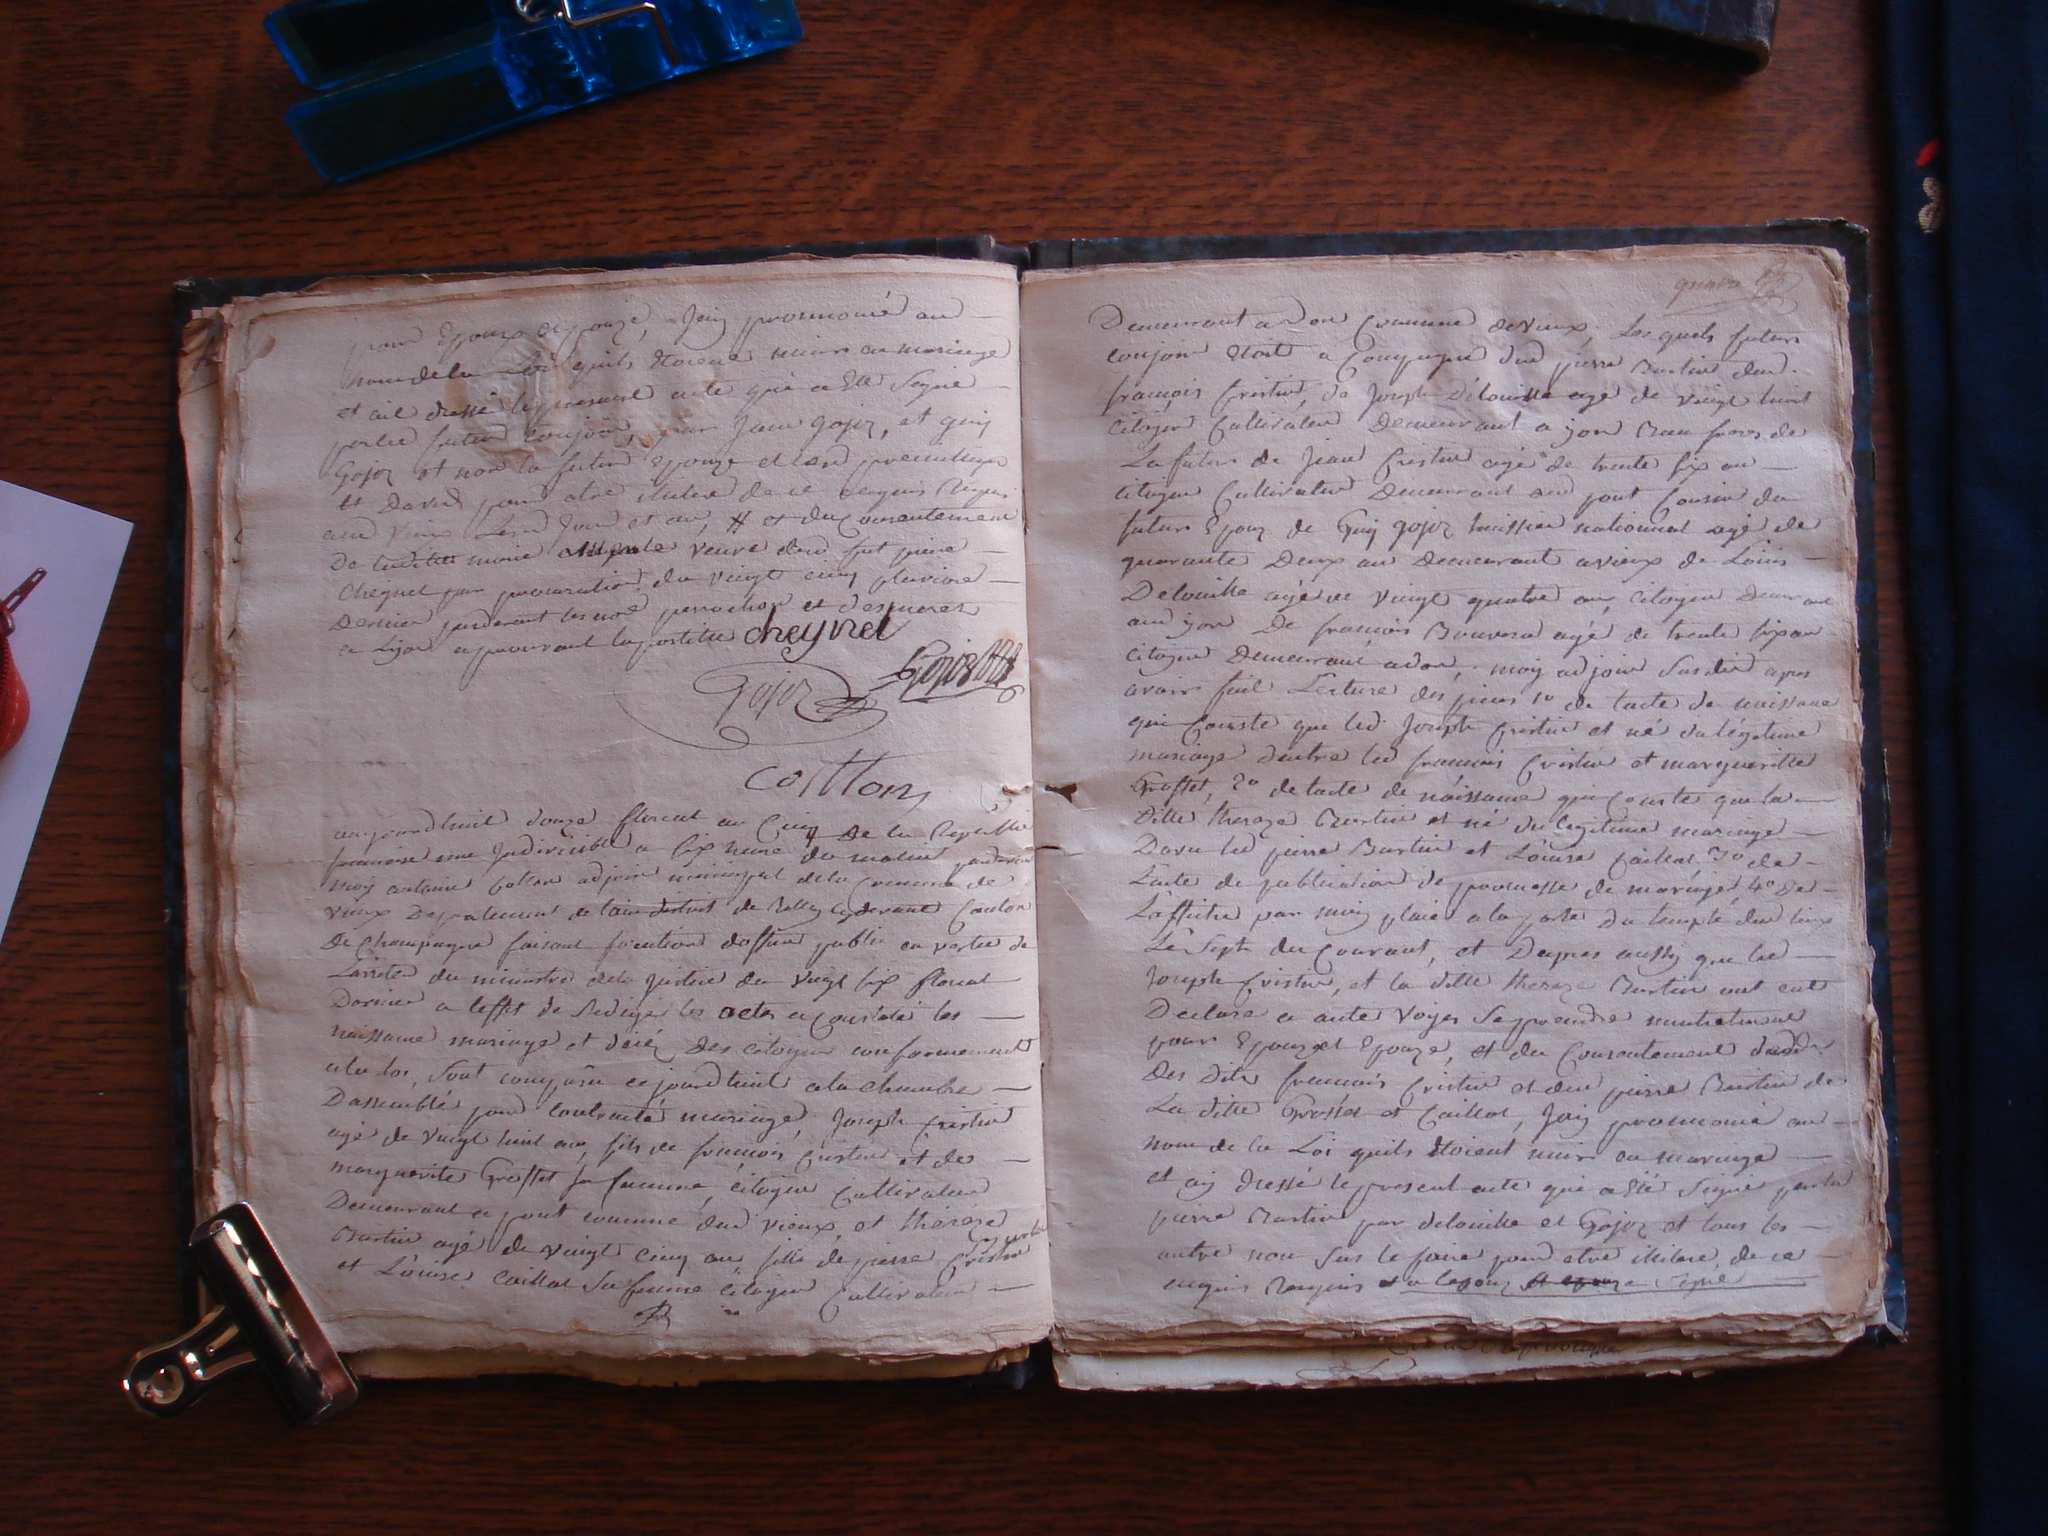 pour Epoux et Epouze, Jaiy prononcé au
nom de la Loi quils étoient unis en mariage
et aie dressé le present acte que a Eté Signé
par les futur conjoin, par Jean gojoz, et guy
Gojoz et non la futur epouze et led
et David pour etre illitere de ce enquis Requis
aud Vieux Lesd Jour et an, # et du Consentement
De marie veuve dud fut pierre
Cheynet par procuration du vingt cinq pluviose
Dernier pardevant les noe perrochon et
a Lyon approuvant lapostille cheynet
Gojoz
Gojoz
Coillon
aujourdhuit douze floreal an Cinq De la Republi
francoise une Indivisible a six heure du matin pardevan
moy antoine adjoin municipal dela Commune de
Vieux Departement de lain district de Belley cydevant Canton
De Champagne faisant fonction dofficier public en vertu de
Larreté du ministre dela Justice du vingt six floreal
Dernier a leffet de Rediger les actes a Constater les
naissance mariage et décéz des citoyen conformement
ala loi, sont comparu cejourdhuit ala chambre
Dassemblé pour contracté mariage, Joseph Cristin
agé de vingt huit ans, fils de francois Cristin et de
marguerite Grosset sa femme, citoyen Cultivateur
Demeurant a pont commune dud Vieux, et théreze
Burtin agé de vingt cinq ans fille de pierre
et Louise Caillat sa femme citoyen Cultivateur
Demeurant a Don Commune de Vieux, Lesquels futurs
conjoin etoit a Compagné dud pierre Burtin dud
françois Cristin, de Joseph Délouille agé de vingt huit
Citoyen Cultivateur Demeurant a yon Beau freres de
La futur de Jean Cristin agé de trente six an
Citoyen Cultivateur Demeurant aud pont Cousin du
futur Epoux de Guy gojoz huissier nationnal agé de
quarante Deux an Demeurant a vieux de Louis
Delouille agé de vingt quatre an, citoyen Demeurant
aud yon De francois Bouvera agé de trente six an
Citoyen Demeurant a don, moy adjoin Susdit apres
avoir fait Lecture des pieces 1o de lacte de naissance
qui Conste que led Joseph Cristin et né du légitime
mariage dentre led francois Cristin et marguerite
Grosset, 2o de lacte de náissance qui Conste que la
ditte thereze Burtin et né du legitime mariage
Davec led pierre Burtin et Louise Caillat 3o de
Lacte de publication de promesse de mariage, 4o De
Laffiche par moy placé a la porte du temple dud lieux
Le Sept du Courant, et Depres aussy que led
Joseph Cristin, et la ditte thereze Burtin ont eut
Declaré a aute Voyes Se prendre mutuelment
pour Epoux et Epouze, et du Consentement
Des Dits francois Cristin et dud pierre Burtin de
La ditte Grosset et Caillat, Jaiy prononcé au
nom de la Loi quils étoient unis en mariage
et aiy dressé le present acte qui a Eté Signé par led
pierre Burtin par delouille et Gojoz et tous les
autre non Sus le faire pour etre illitere, de ce
enquis Requis